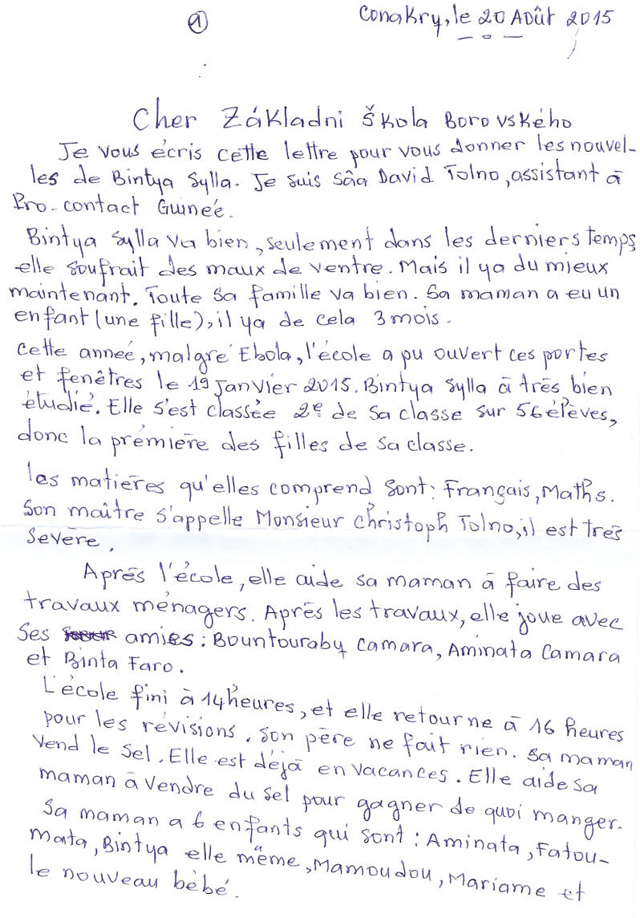 1
Conakry, le 20 Août 2015
Cher Základni škola Borovského
Je vous écris cette lettre pour vous donner les nouvel-
les de Bintya Sylla. Je suis Sâa David Tolno, assistant à
Pro-contact Guineé.
Bintya Sylla va bien, seulement dans les derniers temps
elle soufrait des maux de ventre. Mais il ya du mieux
maintenant. Toute sa famille va bien. Sa maman a eu un
enfant (une fille), il ya de cela 3 mois.
Cette anneé, malgré Ebola, l'école a pu ouvert ces portes
et fenêtres le 19 Janvier 2015. Bintya Sylla à très bien
étudié. Elle s'est classée 2e de sa classe sur 56 élèves,
donc la première des filles de sa classe.
les matières qu'elles comprend sont: Français, Maths.
Son maître s'appelle Monsieur Christoph Tolno, il est très
Sevère.
Après l'école, elle aide sa maman à faire des
travaux ménagers. Après les travaux, elle joue avec
Ses amies: Bountouraby Camara, Aminata Camara
et Binta Faro.
L'école fini à 14heures, et elle retourne à 16 heures
pour les révisions. Son père ne fait rien. Sa maman
Vend le sel. Elle est déjà en vacances. Elle aide sa
maman à vendre du sel pour gagner de quoi manger.
Sa maman a 6 enfants qui sont: Aminata, Fatou-
mata, Bintya elle même, Mamoudou, Mariame et
le nouveau bébé.